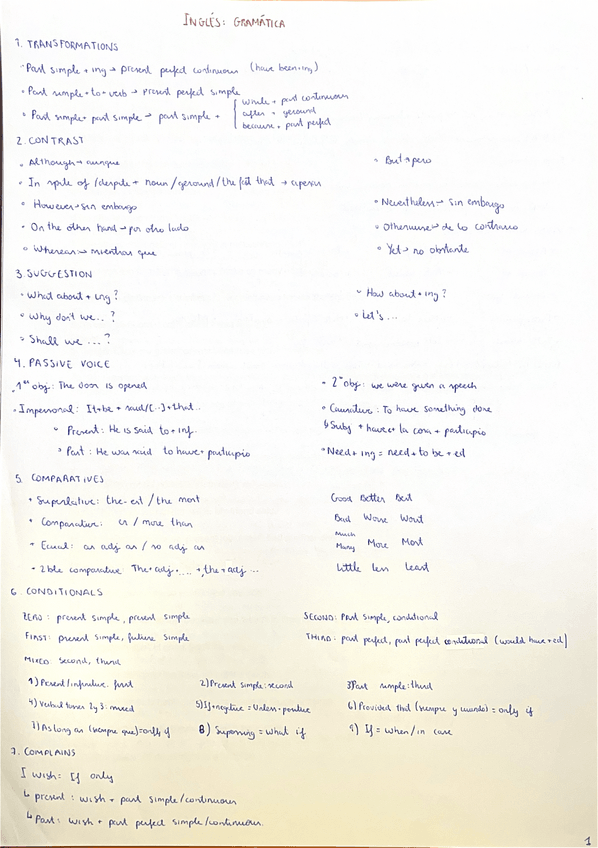 INGLÉS: GRAMÁTICA
1. TRANSFORMATIONS
Past simple + ing → present perfect continuous (have been+ing)
Past simple + to + verb → present perfect simple
Past simple + past simple → past simple +
while + past continuous
after + gerund
because + past perfect
2. CONTRAST
Although → aunque
But → pero
In spite of / despite + noun / gerund / the fact that → a pesar
However → sin embargo
Nevertheless → sin embargo
On the other hand → por otro lado
Otherwise → de lo contrario
Whereas → mientras que
Yet → no obstante
3. SUGGESTION
What about + ing?
How about + ing?
Why don't we..?
Let's...
Shall we ...?
4. PASSIVE VOICE
1st obj: The door is opened
2nd obj: we were given a speech
Impersonal: It+be + said/[..]+that..
Causative: To have something done
Present: He is said to + inf.
Subj + have + la cosa + participio
Past: He was said to have + participio
Need + ing = need + to be + ed
5. COMPARATIVES
Superlative: the -est / the most
Good Better Best
Comparative: er / more than
Bad Worse Worst
Equal: as adj as / so adj as
Much
Many More Most
2ble comparative: The + adj ..... + , the + adj ...
Little less Least
6. CONDITIONALS
ZERO: present simple, present simple
SECOND: Past simple, conditional
FIRST: present simple, future simple
THIRD: past perfect, past perfect conditional (would have + ed)
MIXED: second, third
1) Present/infinitive: first
2) Present simple: second
3) Past simple: third
4) Verbal tenses 2 y 3: mixed
5) If + negative = Unless + positive
6) Provided that (siempre y cuando) = only if
7) As long as (siempre que) = only if
8) Supposing = what if
9) If = when / in case
7. COMPLAINS
I wish = If only
present: wish + past simple/continuous
Past: wish + past perfect simple/continuous.
1